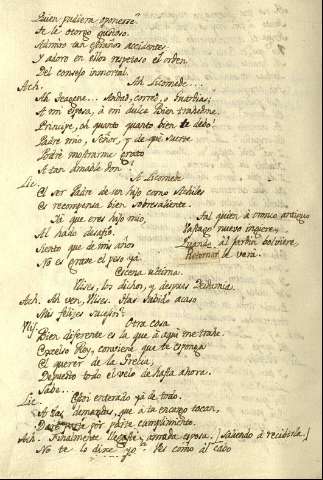 Quien pudiera oponerse?
Se le otorgo gustoso.
Admiro tan estraños accidentes,
Y adoro en ellos respetoso el orden
Del consejo inmortal.
Ach. Ah Licomede...
Ah Teagene... Andad, corred, o Guardias;
A mi esposa, à mi dulce Bien trahedme.
Principe, oh quanto quanto bien te debo!
Padre mio, Señor, y de què suerte
Podrè mostrarme grato
A tan amable don?
A Licomede
Lic. El ser Padre de un hijo como Achiles
Es recompensa bien sobresaliente.
Yà que eres hijo mio,
Al hado desafio.
Siento que de mis años
No es grave el peso yà.
Asi quien à tronco antiguo
Vastago nuevo ingiere,
Quando al jardin bolviere,
Retoñar le verà.
Escena ultima.
Ulises, los dichos, y despues Deidamia.
Ach. Ah ven, Ulises. Has sabido acaso
Mis felizes sucesos?
Ulis. Otra cosa
Bien diferente es la que à aqui me trahe.
Excelso Rey, conviene que te esponga
El querer de la Grecia,
Depuesto todo el velo de hasta ahora.
Sabe...
Lic. Estoi enterado yà de todo.
A las demandas, que à tu encargo tocan,
Darè parte por parte cumplimiento.
Ach. Finalmente llegaste, amada esposa. [Saliendo à recibirla.]
No te lo dixe yo? Ves como al cabo